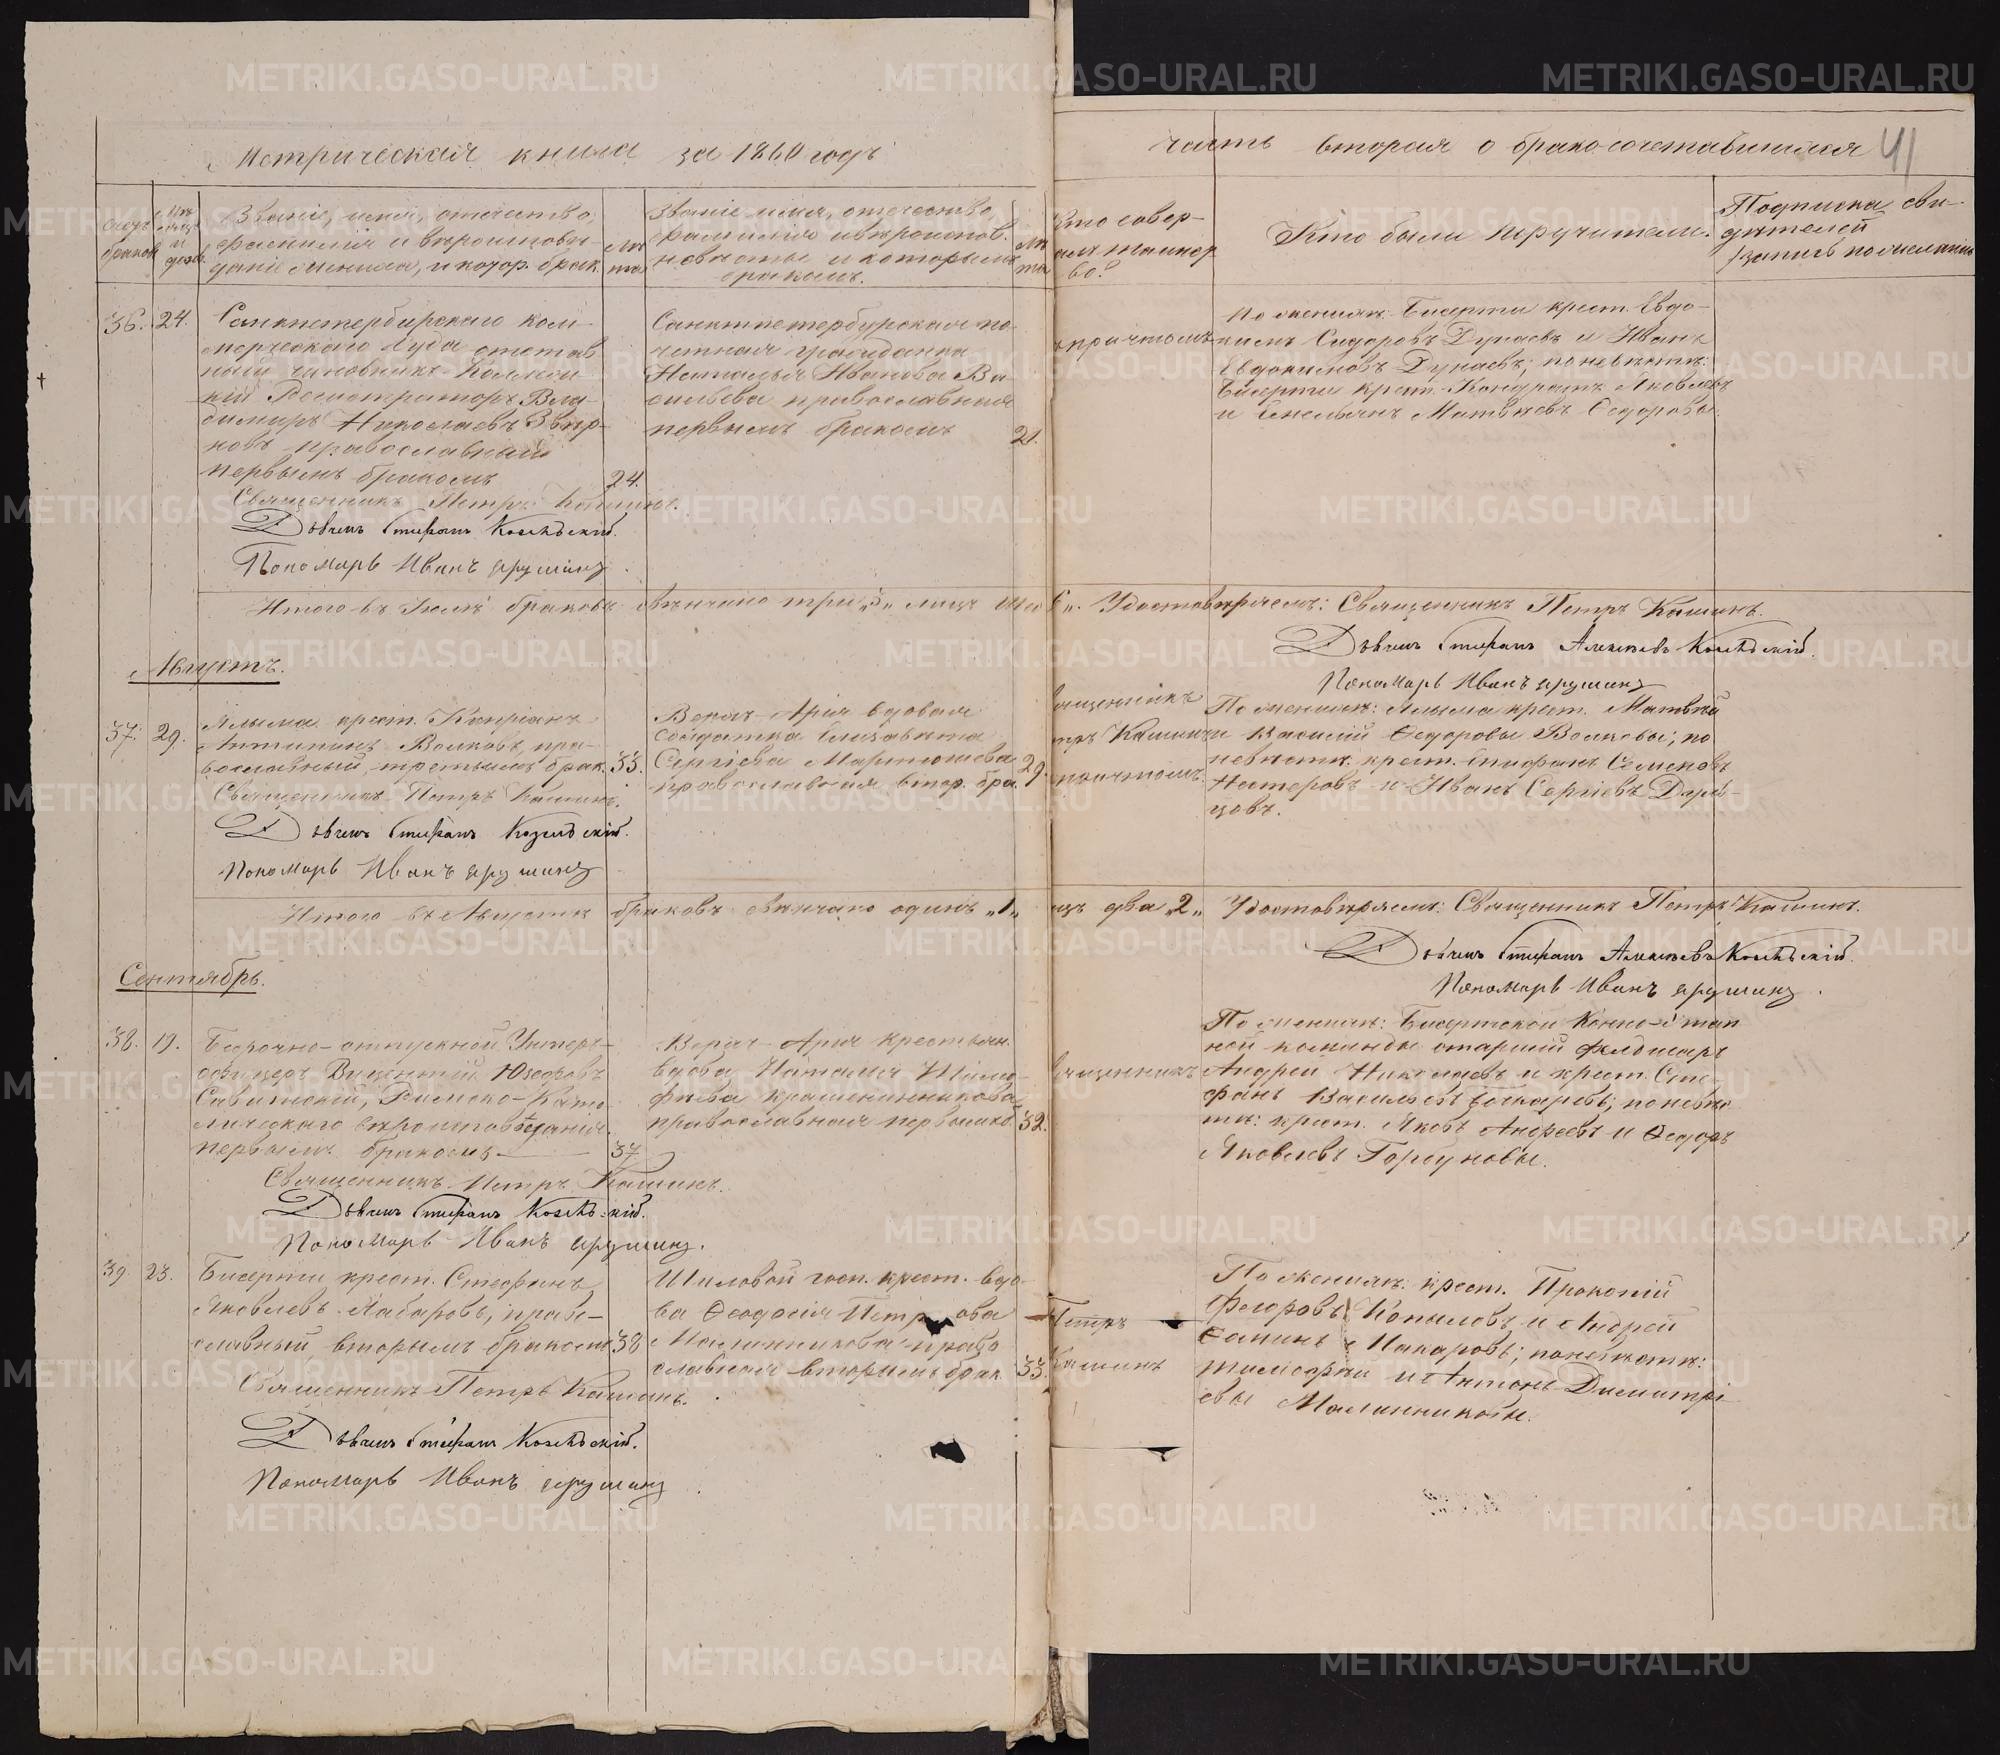 Метрическая книга за 1860 годъ
часть вторая о бракосочетавшихся 41
Счетъ браковъ
Званіе, имя, отчество,
фамилія и вѣроисповѣ-
даніе жениха, и котор. брак.
Лѣта
Званіе имя, отечество,
фамилія и вѣроиспов.
невѣсты и которымъ
бракомъ.
Лѣта
Кто совер-
шалъ таинст
во?
Кто были поручители.
Подписка сви-
дѣтелей
записъ по желанію
36. 24.
Санкпетербургскаго ком-
мерческаго Суда отстав
ный чиновникъ Коллеж
скій Регистраторъ Вла-
димиръ Николаевъ Звѣр-
новъ православный
первымъ бракомъ 24.
Священникъ Петръ Кашинъ.
Діаконъ Стефанъ
Пономарь Иванъ Ярушинъ.
Санктпетербургская по-
четная гражданка
Наталья Иванова Ва-
сильева православная
первымъ бракомъ 21.
съ причтомъ
По женихѣ: Бисерти крест. Евдо-
кимъ Сидоровъ Дунаевъ и Иванъ
Евдокимовъ Дунаевъ; по невѣстѣ:
Бисерти крест. Кондратъ Яковлевъ
и Емельянъ Матвѣевъ Ѳедоровы.
Итого въ Іюлѣ браковъ обвѣнчано три „3„ лицъ шес 6„. Удостовѣряемъ: Священникъ Петръ Кашинъ.
Діаконъ Стефанъ Алексѣевъ
Пономарь Иванъ Ярушинъ
Августъ.
37. 29.
крест. Кипріанъ
Антипинъ Волковъ, пра-
вославный, третьимъ брак. 35.
Священникъ Петръ Кашинъ.
Діаконъ Стефанъ
Пономарь Иванъ Ярушинъ
Верхъ-Арія вдовая
Солдатка Елизавета
Сергіева Мартюшева
православная втор. бра. 29.
Священникъ
Петръ Кашинъ
съ причтомъ.
По женихѣ: крест. Матвѣй
и Василій Ѳедоровы Волковы; по
невѣстѣ: крест. Епифанъ Семеновъ
Нестеровъ и Иванъ Сергіевъ
Итого въ Августѣ браковъ обвѣнчано одинъ „1„ лицъ два „2„ Удостовѣряемъ: Священникъ Петръ Кашинъ.
Діаконъ Стефанъ Алексѣевъ
Пономарь Иванъ Ярушинъ.
Сентябрь.
38. 19.
Безсрочно-отпускной Унтеръ-
офицеръ Викентій Юзефовъ
Савитскій, Римско-Като
лическаго вѣроисповѣданія.
первымъ бракомъ 37
Священникъ Петръ Кашинъ.
Діаконъ Стефанъ
Пономарь Иванъ Ярушинъ.
Верхъ-Арія крестьян.
вдова Наталія Тимо-
фѣева Крашенинникова,
православная 32.
Священникъ
По женихѣ: Бисертской Конно-Этап
ной команды старшій фелдшаръ
Андрей Николаевъ и крест. Сте-
фанъ Васильевъ; по невѣс
тѣ: крест. Яковъ Андреевъ и Ѳедоръ
Яковлевъ Горбуновы.
39. 23.
Бисерти крест. Стефанъ
Яковлевъ Хабаровъ, право-
славный вторымъ бракомъ 38
Священникъ Петръ Кашинъ.
Діаконъ Стефанъ
Пономарь Иванъ Ярушинъ
Шиловой гос. крест. вдо-
ва Ѳеодосія Петрова
Малинникова право
славная вторымъ брак. 33.
Петръ
Кашинъ
По женихѣ: крест. Прокопій
Копыловъ и Андрей
Макаровъ; по невѣстѣ:
Тимофей и Антонъ Димитрі-
евы Малинниковы.
METRIKI.GASO-URAL.RU